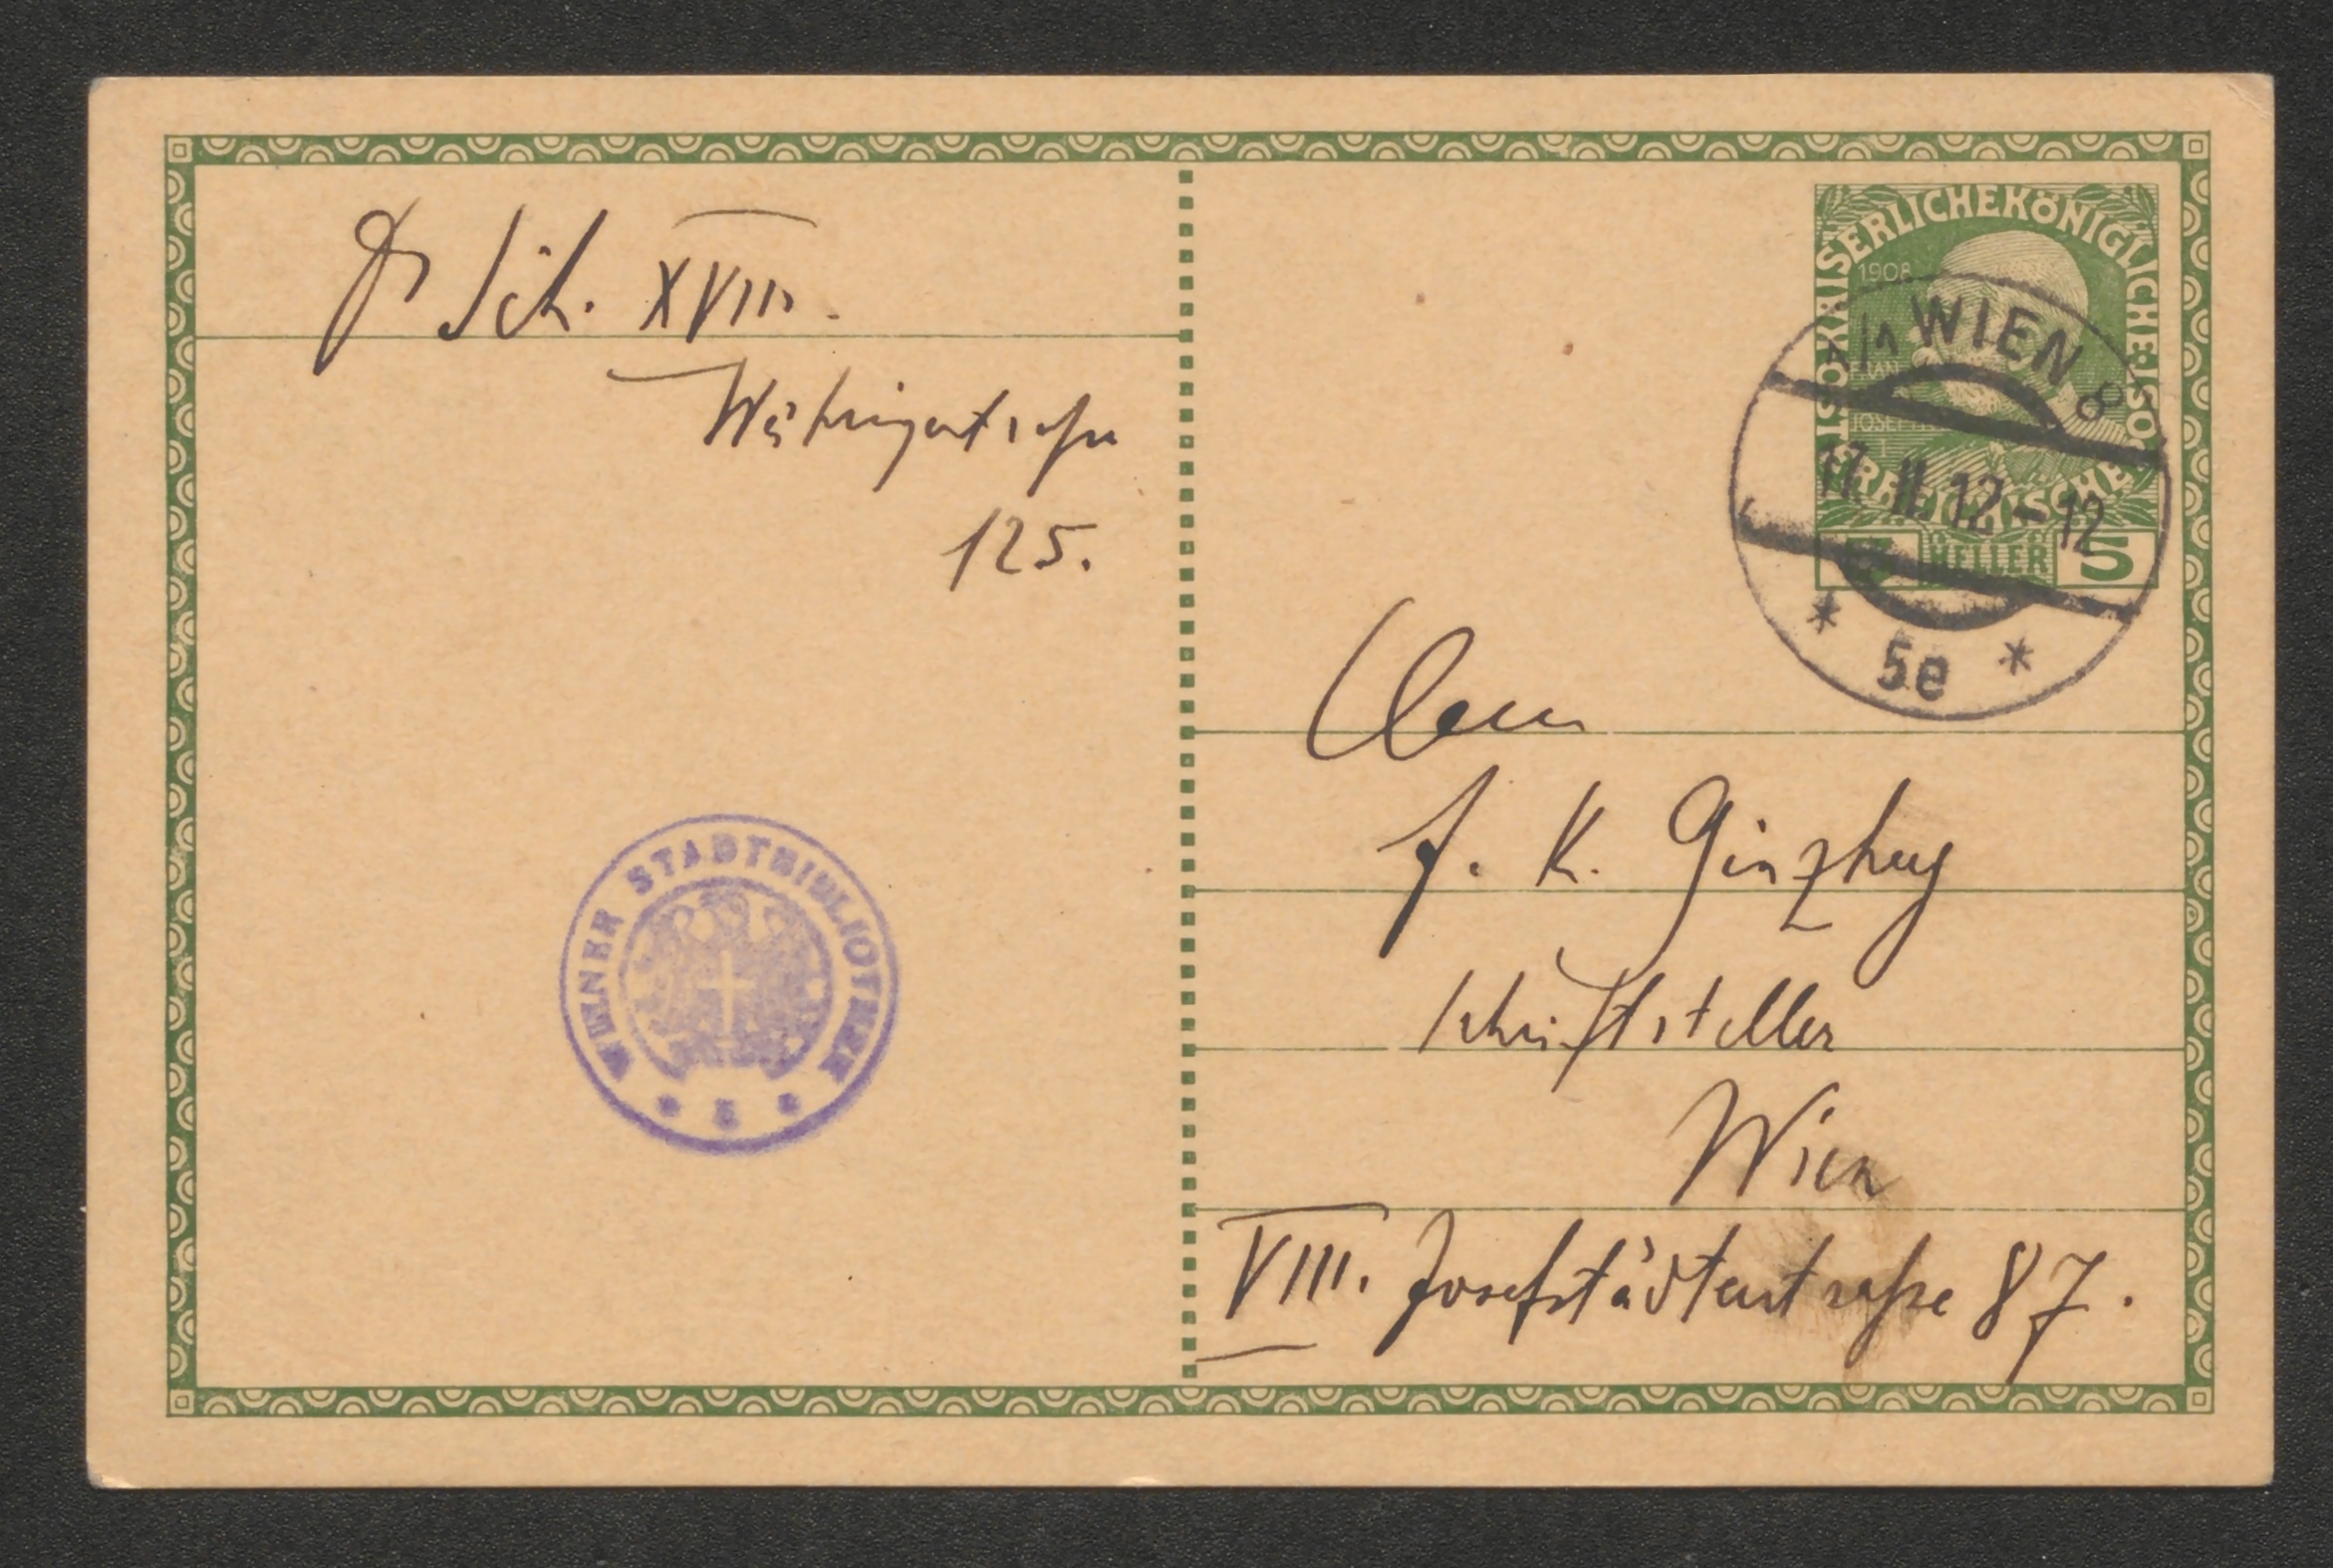 Dr Sch. XVIII.
Währingerstrasse
125.
WIENER STADTBIBLIOTHEK
KAISERLICHE KÖNIGLICHE ÖSTERREICHISCHE POST
1908
FRANZ
JOSEPH
I
HELLER 5
8/1 WIEN 8
17. II. 12 - 12
* 5e *
Herrn
F. K. Ginzkey
Schriftsteller
Wien
VIII. Josefstädterstrasse 87.